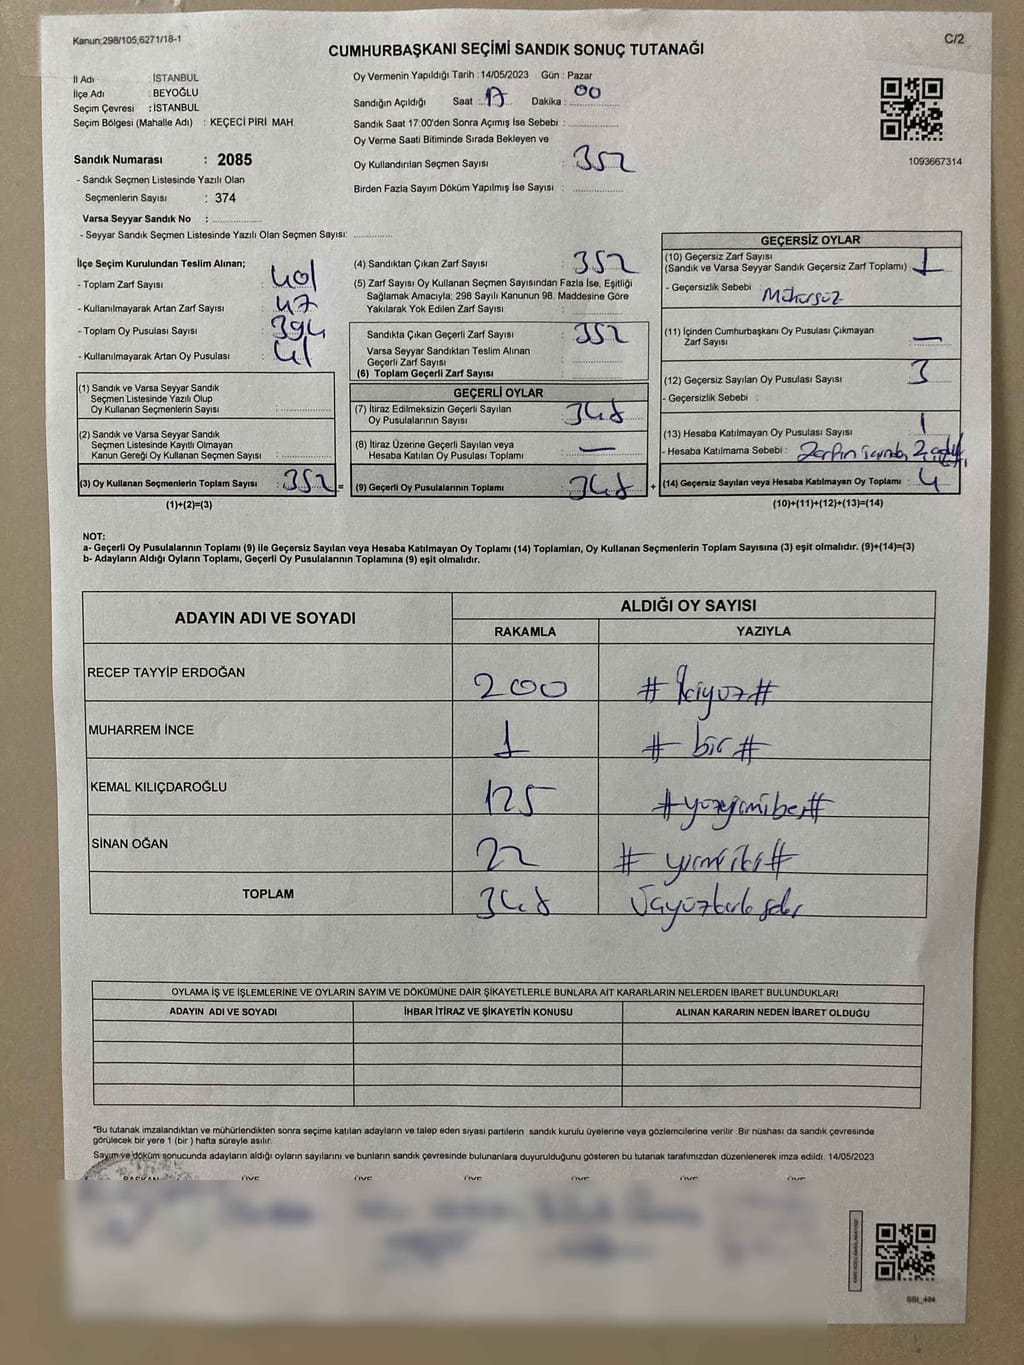 Kanun;298/105;6271/18-1
C/2
CUMHURBAŞKANI SEÇİMİ SANDIK SONUÇ TUTANAĞI
İl Adı : İSTANBUL
İlçe Adı : BEYOĞLU
Seçim Çevresi : İSTANBUL
Seçim Bölgesi (Mahalle Adı) : KEÇECİ PİRİ MAH.
Sandık Numarası : 2085
- Sandık Seçmen Listesinde Yazılı Olan
Seçmenlerin Sayısı : 374
Varsa Seyyar Sandık No :
- Seyyar Sandık Seçmen Listesinde Yazılı Olan Seçmen Sayısı:
Oy Vermenin Yapıldığı Tarih : 14/05/2023 Gün : Pazar
Sandığın Açıldığı Saat : 17 Dakika : 00
Sandık Saat 17:00'den Sonra Açımış İse Sebebi :
Oy Verme Saati Bitiminde Sırada Bekleyen ve
Oy Kullandırılan Seçmen Sayısı : 352
Birden Fazla Sayım Döküm Yapılmış İse Sayısı :
1093667314
İlçe Seçim Kurulundan Teslim Alınan;
- Toplam Zarf Sayısı : 401
- Kullanılmayarak Artan Zarf Sayısı : 47
- Toplam Oy Pusulası Sayısı : 394
- Kullanılmayarak Artan Oy Pusulası : 41
(1) Sandık ve Varsa Seyyar Sandık
Seçmen Listesinde Yazılı Olup
Oy Kullanan Seçmenlerin Sayısı :
(2) Sandık ve Varsa Seyyar Sandık
Seçmen Listesinde Kayıtlı Olmayan
Kanun Gereği Oy Kullanan Seçmen Sayısı :
(3) Oy Kullanan Seçmenlerin Toplam Sayısı : 352 =
(1)+(2)=(3)
(4) Sandıktan Çıkan Zarf Sayısı : 352
(5) Zarf Sayısı Oy Kullanan Seçmen Sayısından Fazla İse, Eşitliği
Sağlamak Amacıyla; 298 Sayılı Kanunun 98. Maddesine Göre
Yakılarak Yok Edilen Zarf Sayısı :
Sandıkta Çıkan Geçerli Zarf Sayısı : 352
Varsa Seyyar Sandıktan Teslim Alınan
Geçerli Zarf Sayısı :
(6) Toplam Geçerli Zarf Sayısı :
GEÇERLİ OYLAR
(7) İtiraz Edilmeksizin Geçerli Sayılan
Oy Pusulalarının Sayısı : 348
(8) İtiraz Üzerine Geçerli Sayılan veya
Hesaba Katılan Oy Pusulası Toplamı : —
(9) Geçerli Oy Pusulalarının Toplamı : 348 +
GEÇERSİZ OYLAR
(10) Geçersiz Zarf Sayısı
(Sandık ve Varsa Seyyar Sandık Geçersiz Zarf Toplamı) : 1
- Geçersizlik Sebebi : Mühürsüz
(11) İçinden Cumhurbaşkanı Oy Pusulası Çıkmayan
Zarf Sayısı : —
(12) Geçersiz Sayılan Oy Pusulası Sayısı : 3
- Geçersizlik Sebebi :
(13) Hesaba Katılmayan Oy Pusulası Sayısı : 1
- Hesaba Katılmama Sebebi : Zarfın içinde 2 adet
(14) Geçersiz Sayılan veya Hesaba Katılmayan Oy Toplamı : 4
(10)+(11)+(12)+(13)=(14)
NOT:
a- Geçerli Oy Pusulalarının Toplamı (9) ile Geçersiz Sayılan veya Hesaba Katılmayan Oy Toplamı (14) Toplamları, Oy Kullanan Seçmenlerin Toplam Sayısına (3) eşit olmalıdır. (9)+(14)=(3)
b- Adayların Aldığı Oyların Toplamı, Geçerli Oy Pusulalarının Toplamına (9) eşit olmalıdır.
ADAYIN ADI VE SOYADI ALDIĞI OY SAYISI
RAKAMLA YAZIYLA
RECEP TAYYİP ERDOĞAN 200 # İkiyüz #
MUHARREM İNCE 1 # bir #
KEMAL KILIÇDAROĞLU 125 # yüzyirmibeş #
SİNAN OĞAN 22 # yirmi iki #
TOPLAM 348 Üçyüzkırksekiz
OYLAMA İŞ VE İŞLEMLERİNE VE OYLARIN SAYIM VE DÖKÜMÜNE DAİR ŞİKAYETLERLE BUNLARA AİT KARARLARIN NELERDEN İBARET BULUNDUKLARI
ADAYIN ADI VE SOYADI İHBAR İTİRAZ VE ŞİKAYETİN KONUSU ALINAN KARARIN NEDEN İBARET OLDUĞU
*Bu tutanak imzalandıktan ve mühürlendikten sonra seçime katılan adayların ve talep eden siyasi partilerin sandık kurulu üyelerine veya gözlemcilerine verilir. Bir nüshası da sandık çevresinde
görülecek bir yere 1 (bir ) hafta süreyle asılır.
Sayım ve döküm sonucunda adayların aldığı oyların sayılarını ve bunların sandık çevresinde bulunanlara duyurulduğunu gösteren bu tutanak tarafımızdan düzenlenerek imza edildi. 14/05/2023
BAŞKAN ÜYE ÜYE ÜYE ÜYE ÜYE